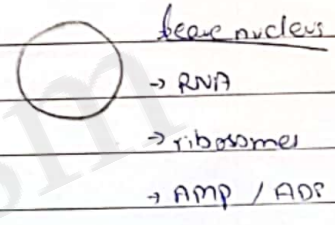 leave nucleus
→ RNA
→ ribosomes
→ AMP / ADP